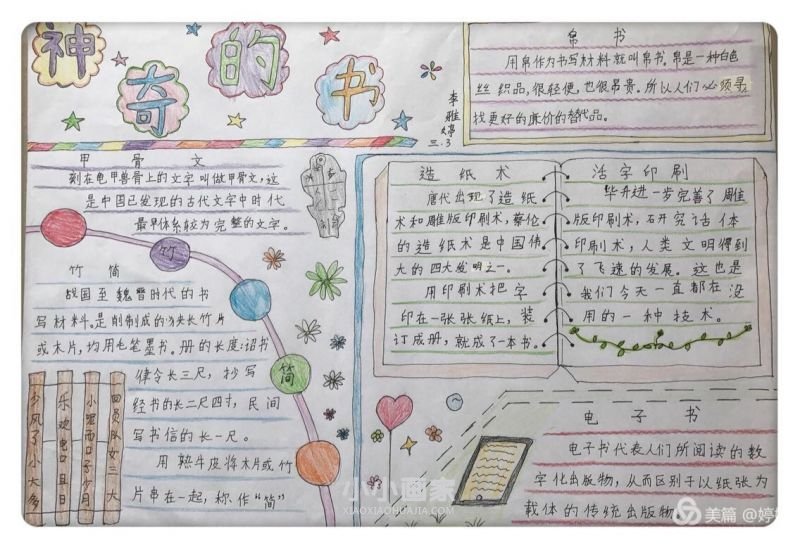 神奇的书
李雅婷
三.3
帛书
用帛作为书写材料就叫帛书。帛是一种白色
丝织品,很轻便,也很昂贵。所以人们必须寻
找更好的廉价的替代品。
甲骨文
刻在龟甲兽骨上的文字叫做甲骨文,这
是中国已发现的古代文字中时代
最早体系较为完整的文字。
竹
竹简
战国至魏晋时代的书
写材料。是削制成的狭长竹片
或木片,均用毛笔墨书。册的长度:诏书
律令长三尺,抄写
经书的长二尺四寸,民间
写书信的长一尺。
用熟牛皮将木片或竹
片串在一起,称作“简”
简
造纸术
唐代出现了造纸
术和雕版印刷术,蔡伦
的造纸术是中国伟
大的四大发明之一。
用印刷术把字
印在一张张纸上,装
订成册,就成了一本书。
活字印刷
毕升进一步完善了雕
版印刷术,研究活体
印刷术,人类文明得到
了飞速的发展。这也是
我们今天一直都在没
用的一种技术。
电子书
电子书代表人们所阅读的数
字化出版物,从而区别于以纸张为
载体的传统出版物。
小小画家
XIAOXIAOHUAJIA.COM
美篇 @婷